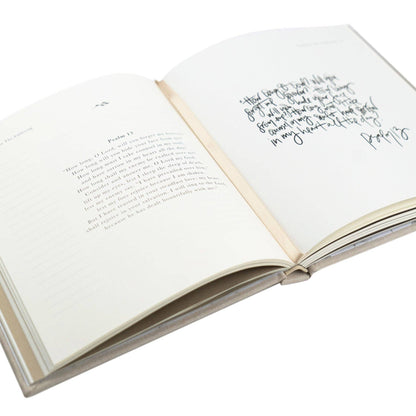 Psalm 13
"How long, O Lord, will you forget me forever?
How long will you hide your face from me?
How long must I take counsel in my soul,
and have sorrow in my heart all the day?
How long shall my enemy be exalted over me?
Consider and answer me, O Lord my God,
lift up my eyes, lest I sleep the sleep of death,
lest my enemy say, "I have prevailed over him,"
lest my foes rejoice because I am shaken.
But I have trusted in your steadfast love; my heart
shall rejoice in your salvation. I will sing to the Lord,
because he has dealt bountifully with me."
"How long O Lord? Will you
forget me forever? How long
will you hide your face
from me? How long must I take
counsel in my soul and have sorrow
in my heart all the day